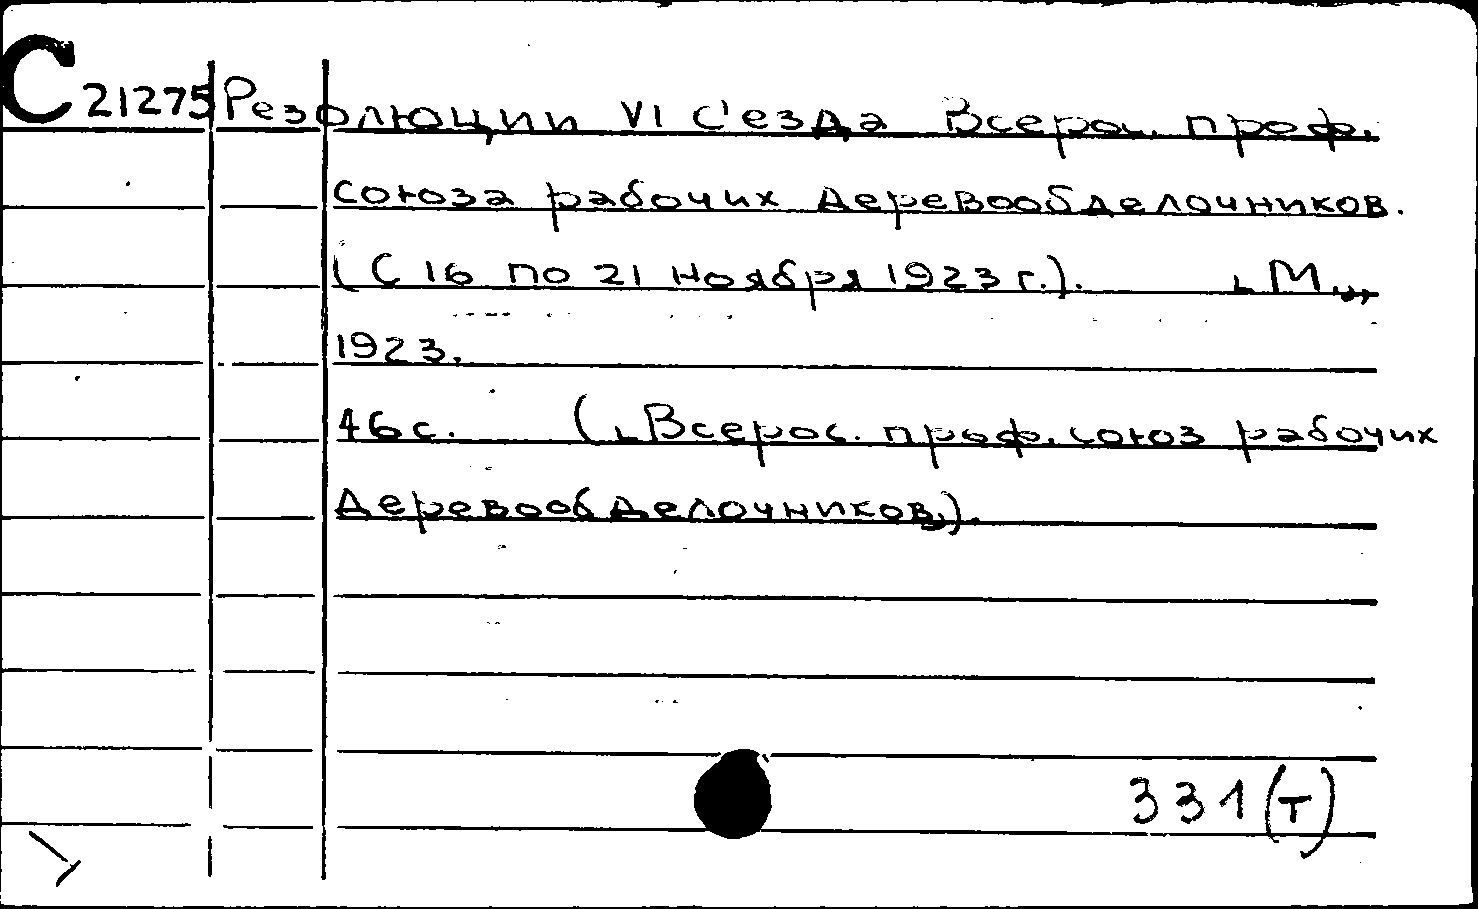 С 21275 Резолюции VI с'езда Всерос. проф.
союза рабочих деревообделочников.
(С 16 по 21 ноября 1923 г.). [М.],
1923.
46 с. ([Всерос. проф. союз рабочих
деревообделочников]).
331(т)